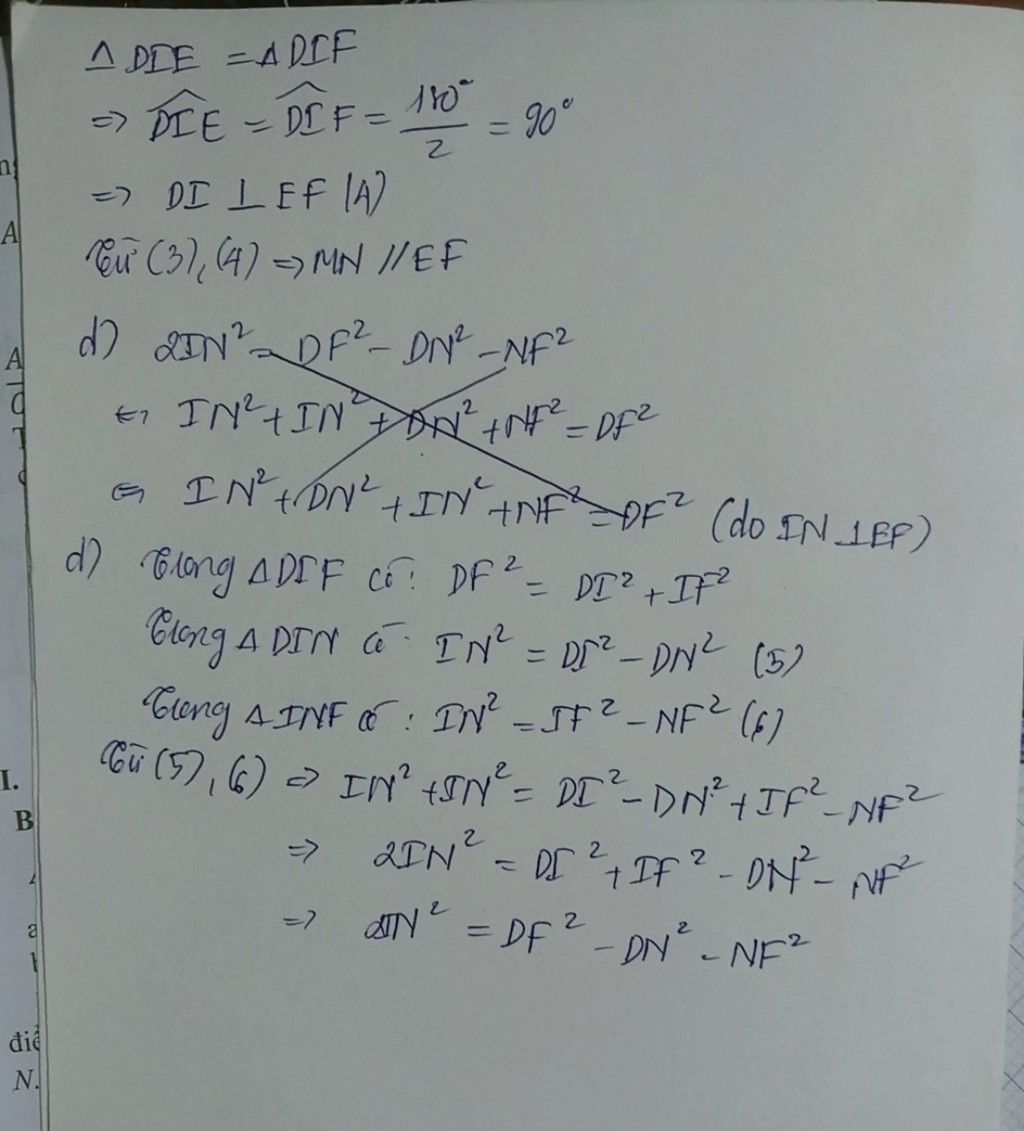 Δ DIE = Δ DIF
=> \widehat{DIE} = \widehat{DIF} = 180°/2 = 90°
=> DI ⊥ EF (4)
Từ (3), (4) => MN // EF
d) 2IN² = DF² - DN² - NF²
<=> IN² + IN² + DN² + NF² = DF²
<=> IN² + DN² + IN² + NF² = DF² (do IN ⊥ EF)
d) Trong Δ DIF có: DF² = DI² + IF²
Trong Δ DIN có: IN² = DI² - DN² (5)
Trong Δ INF có: IN² = IF² - NF² (6)
Từ (5), (6) => IN² + IN² = DI² - DN² + IF² - NF²
=> 2IN² = DI² + IF² - DN² - NF²
=> 2IN² = DF² - DN² - NF²
A
A
I.
B
điể
N.